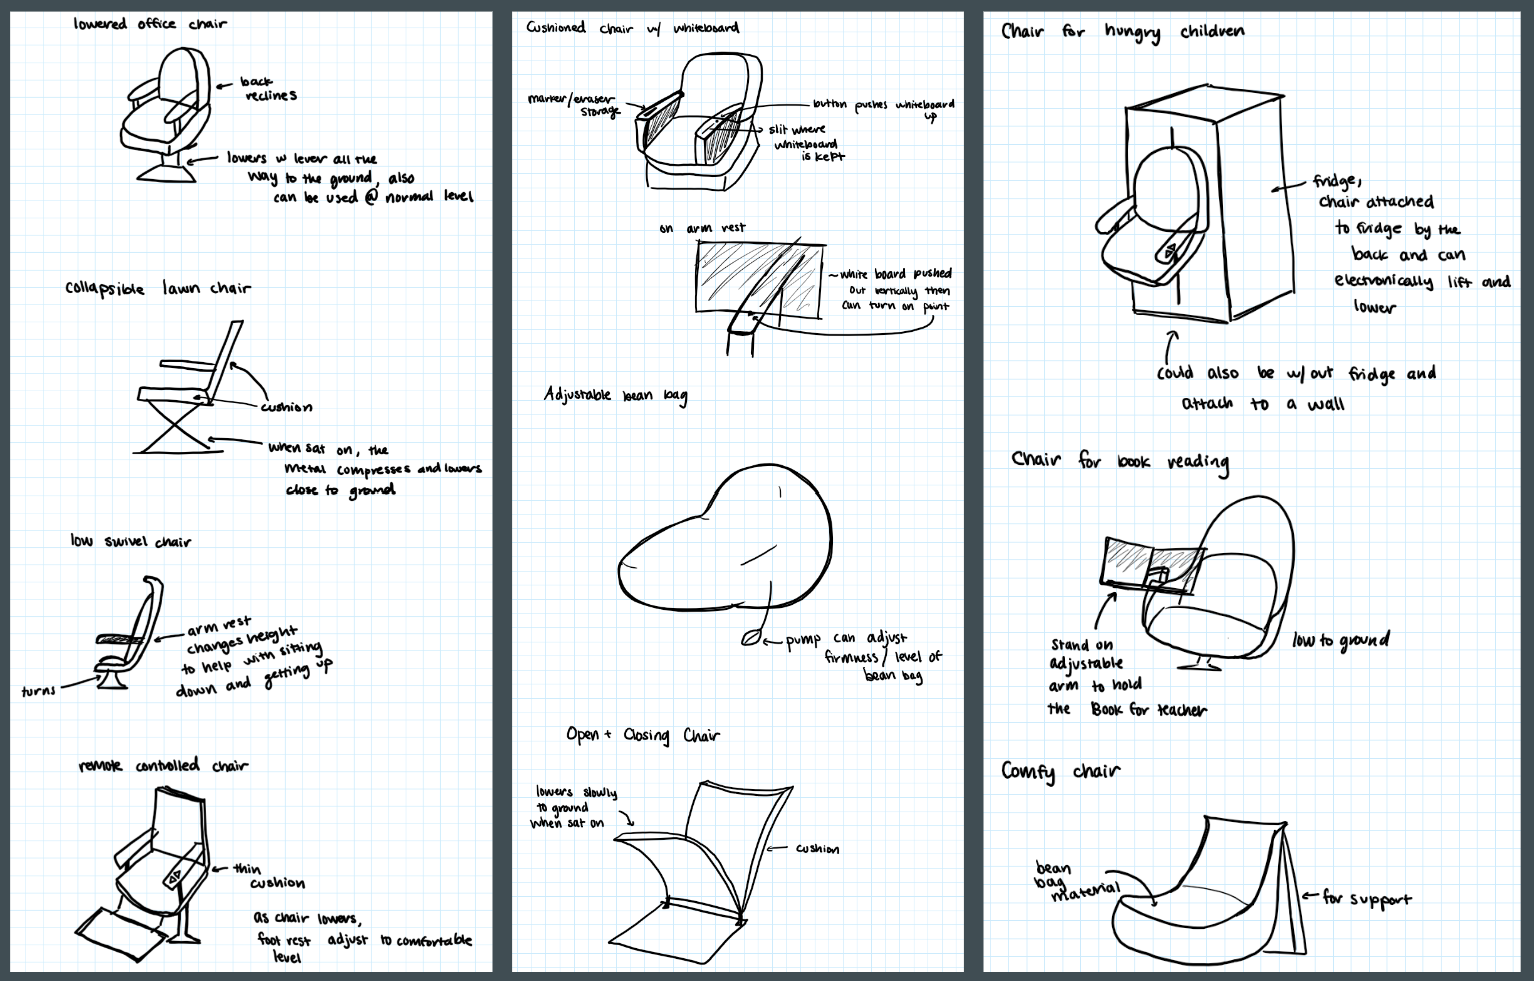 lowered office chair
back
reclines
lowers w lever all the
way to the ground, also
can be used @ normal level
collapsible lawn chair
cushion
when sat on, the
metal compresses and lowers
close to ground
low swivel chair
arm rest
changes height
to help with sitting
down and getting up
turns
remote controlled chair
thin
cushion
as chair lowers,
foot rest adjust to comfortable
level
Cushioned chair w/ whiteboard
marker/eraser
storage
button pushes whiteboard
up
slit where
whiteboard
is kept
on arm rest
white board pushed
out vertically then
can turn on point
Adjustable bean bag
pump can adjust
firmness/level of
bean bag
Open + Closing Chair
lowers slowly
to ground
when sat on
cushion
Chair for hungry children
fridge,
chair attached
to fridge by the
back and can
electronically lift and
lower
could also be w/out fridge and
attach to a wall
Chair for book reading
Stand on
adjustable
arm to hold
the Book for teacher
low to ground
Comfy chair
bean
bag
material
for support